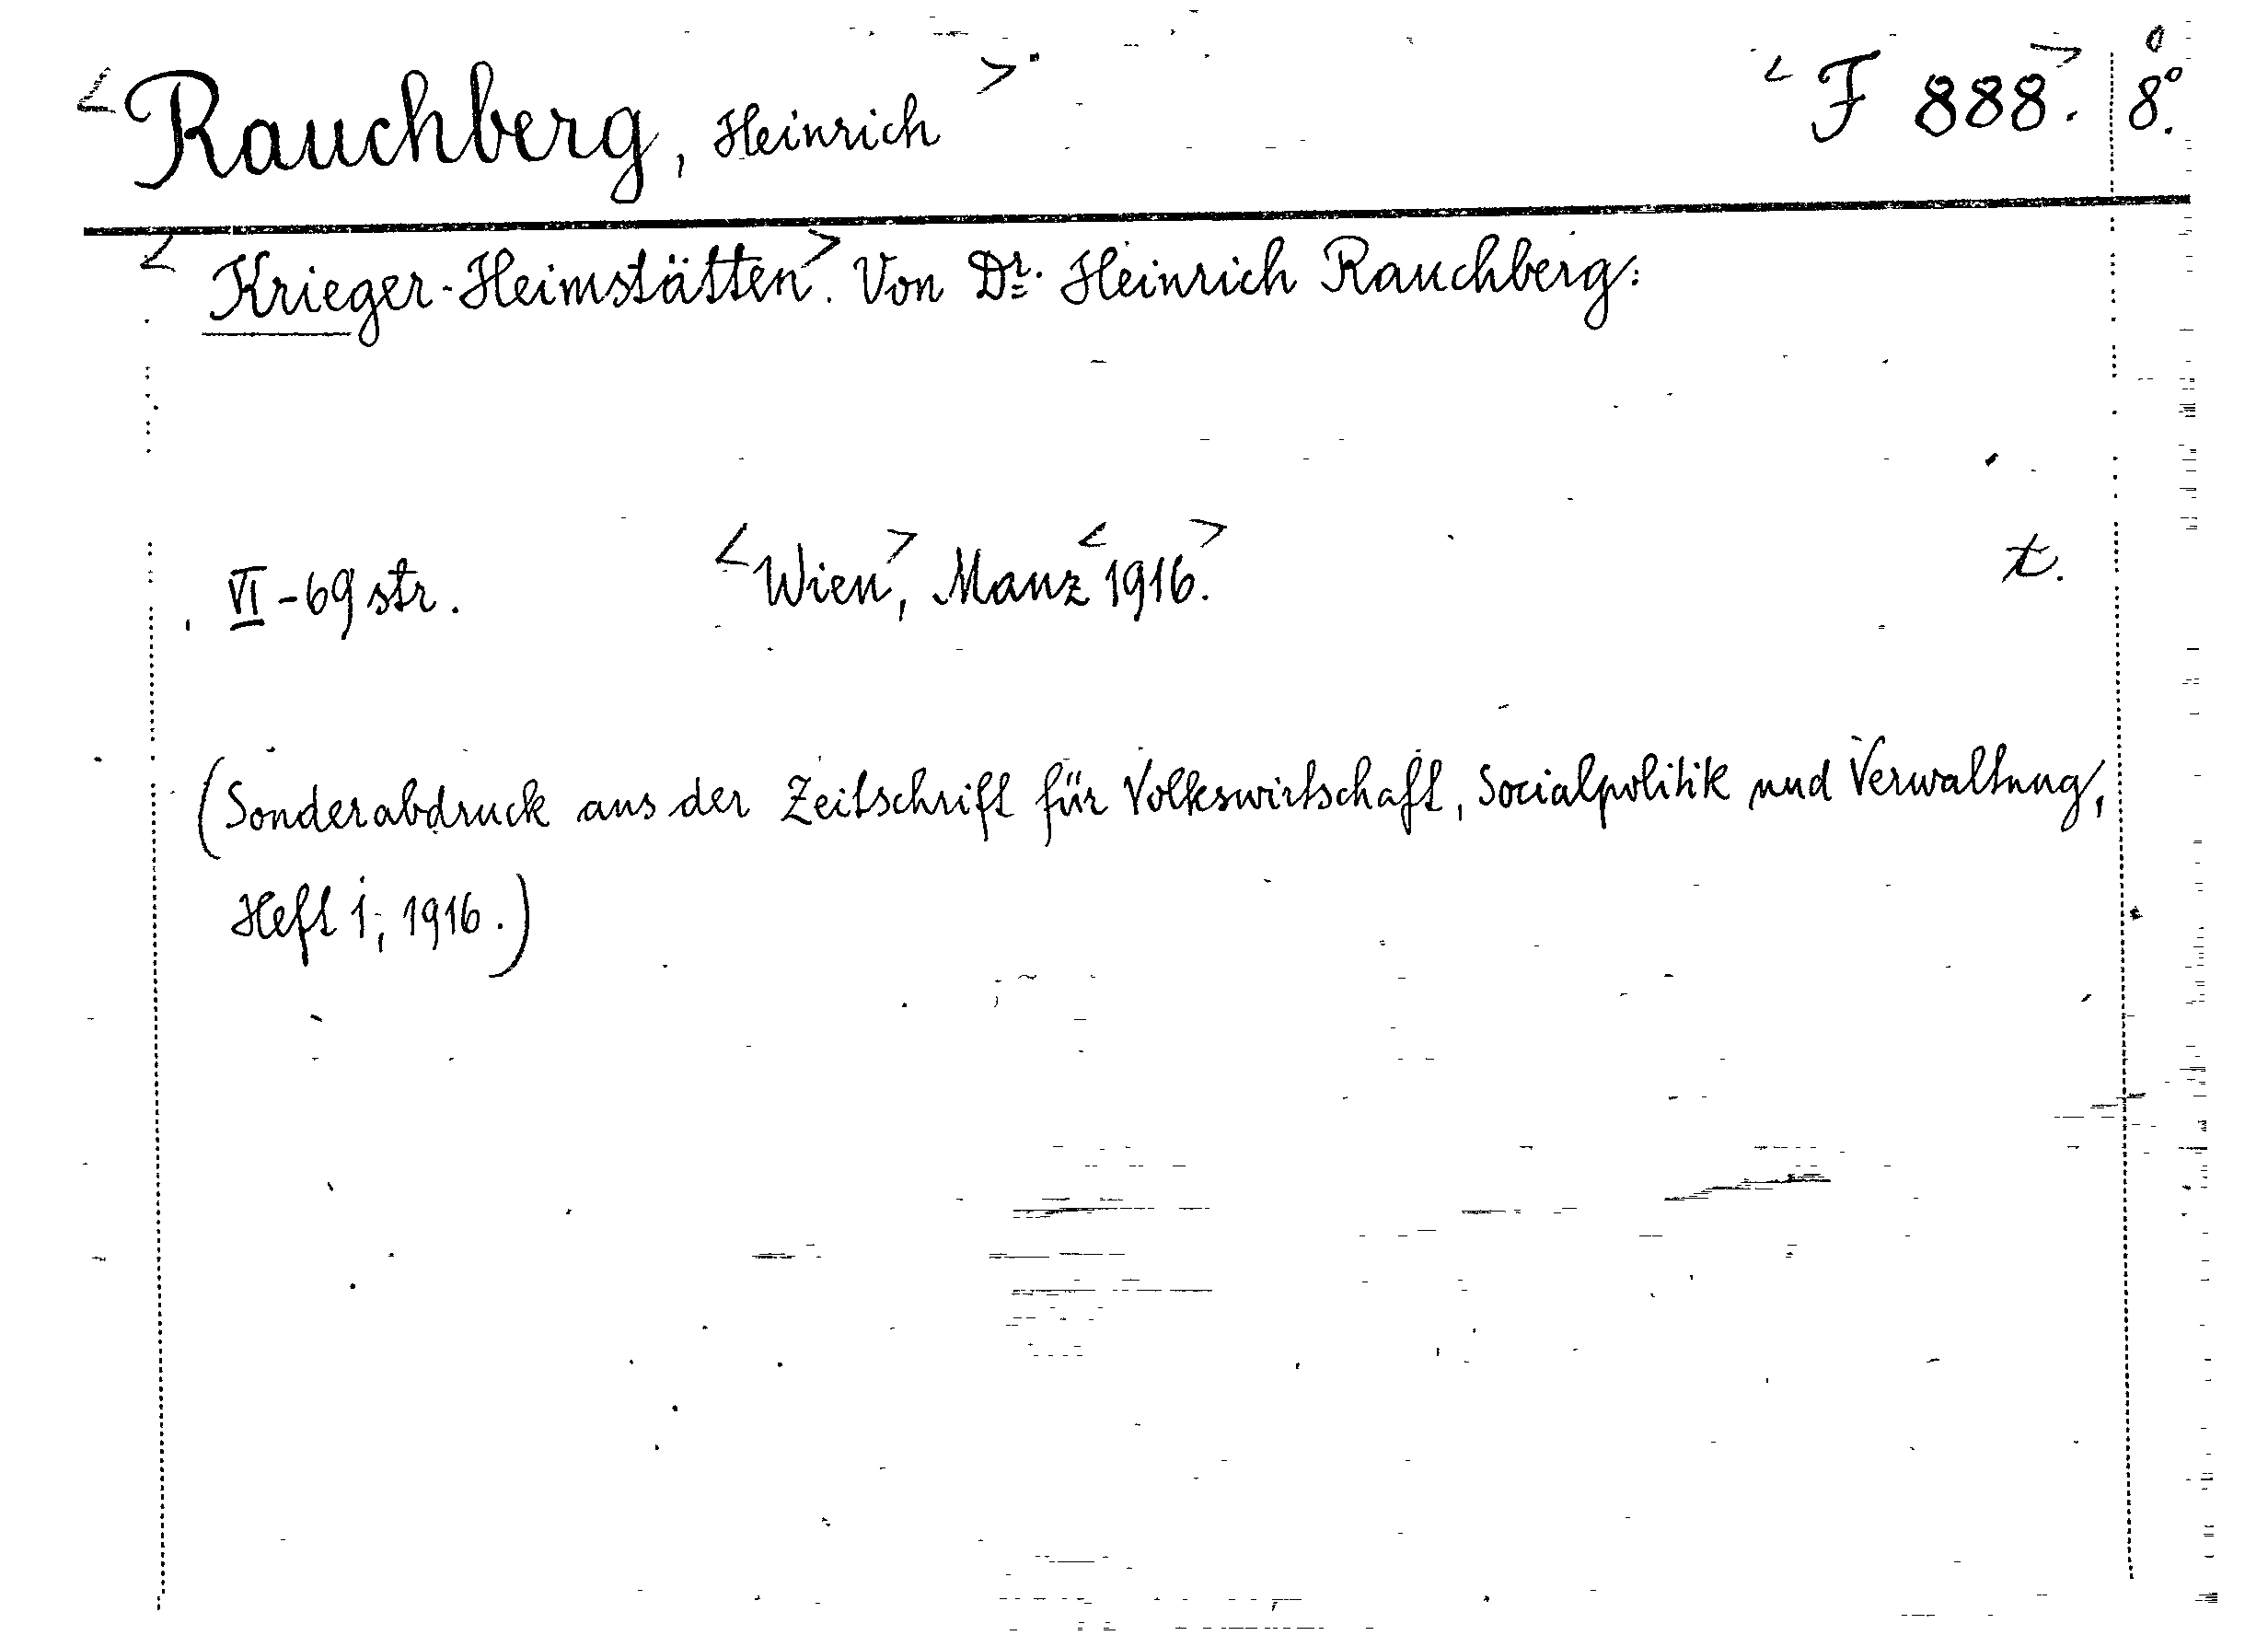 <Rauchberg, Heinrich> <F 888>. 8°.
<Krieger-Heimstätten>. Von Dr. Heinrich Rauchberg:
VI-69 str. <Wien>, Manz <1916>. t.
(Sonderabdruck aus der Zeitschrift für Volkswirtschaft, Socialpolitik und Verwaltung,
Heft 1, 1916.)